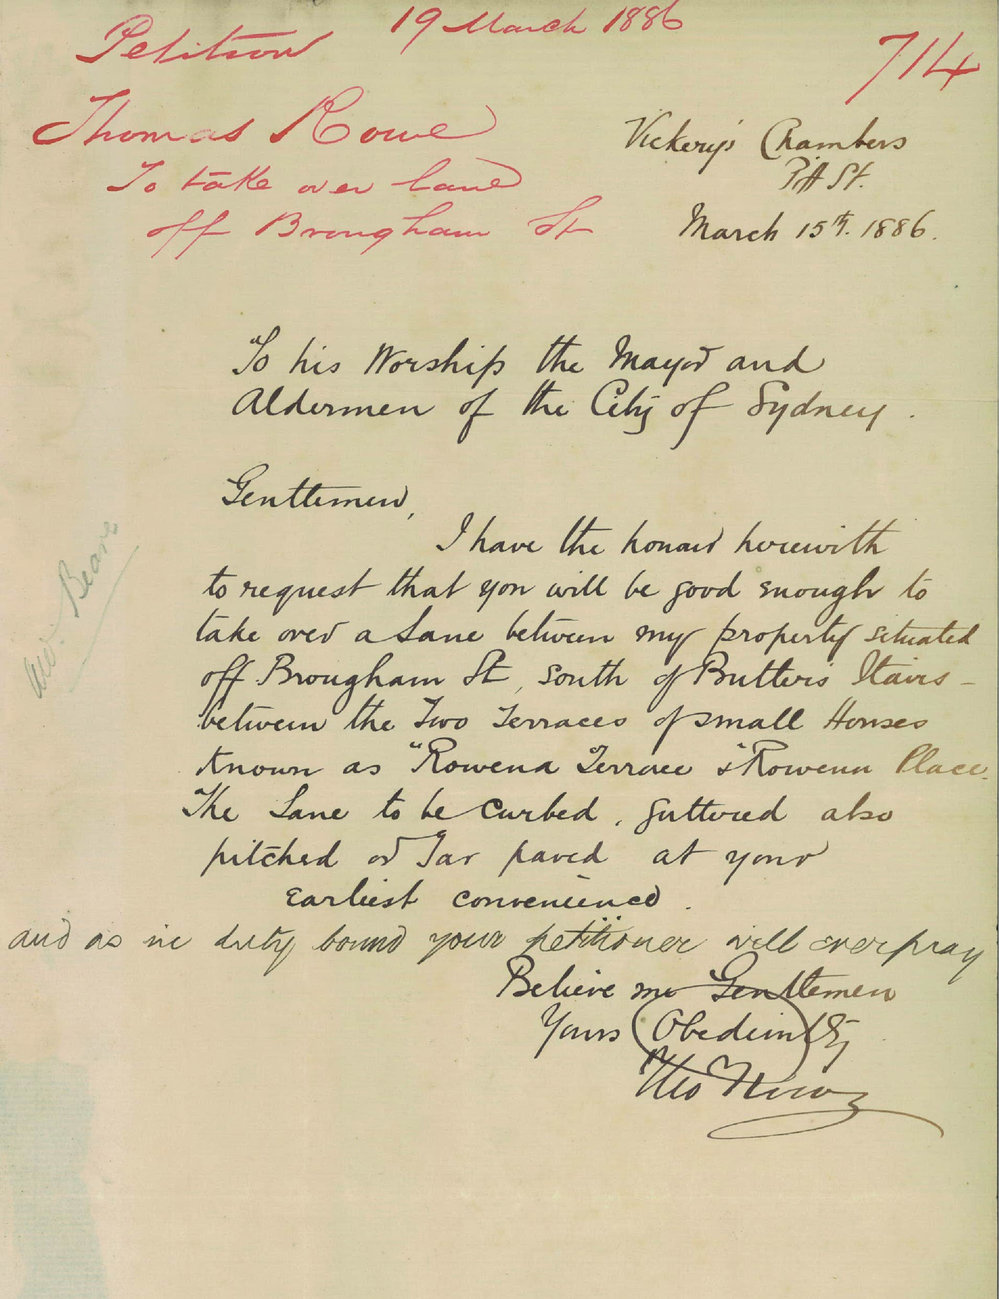 Petition 19 March 1886
714
Thomas Rowe
To take over lane
off Brougham St
Vickery's Chambers
Pitt St.
March 15th. 1886.
To his Worship the Mayor and
Aldermen of the City of Sydney.
Gentlemen,
I have the honour herewith
to request that you will be good enough to
take over a Lane between my property situated
off Brougham St, south of Butter's Stairs -
between the Two Terraces of small Houses
known as "Rowena Terrace & "Rowena Place.
The Lane to be curbed, guttered also
pitched or Tar paved at your
earliest convenience.
and as in duty bound your petitioner will ever pray
Believe me Gentlemen
Yours Obediently
Tho Rowe